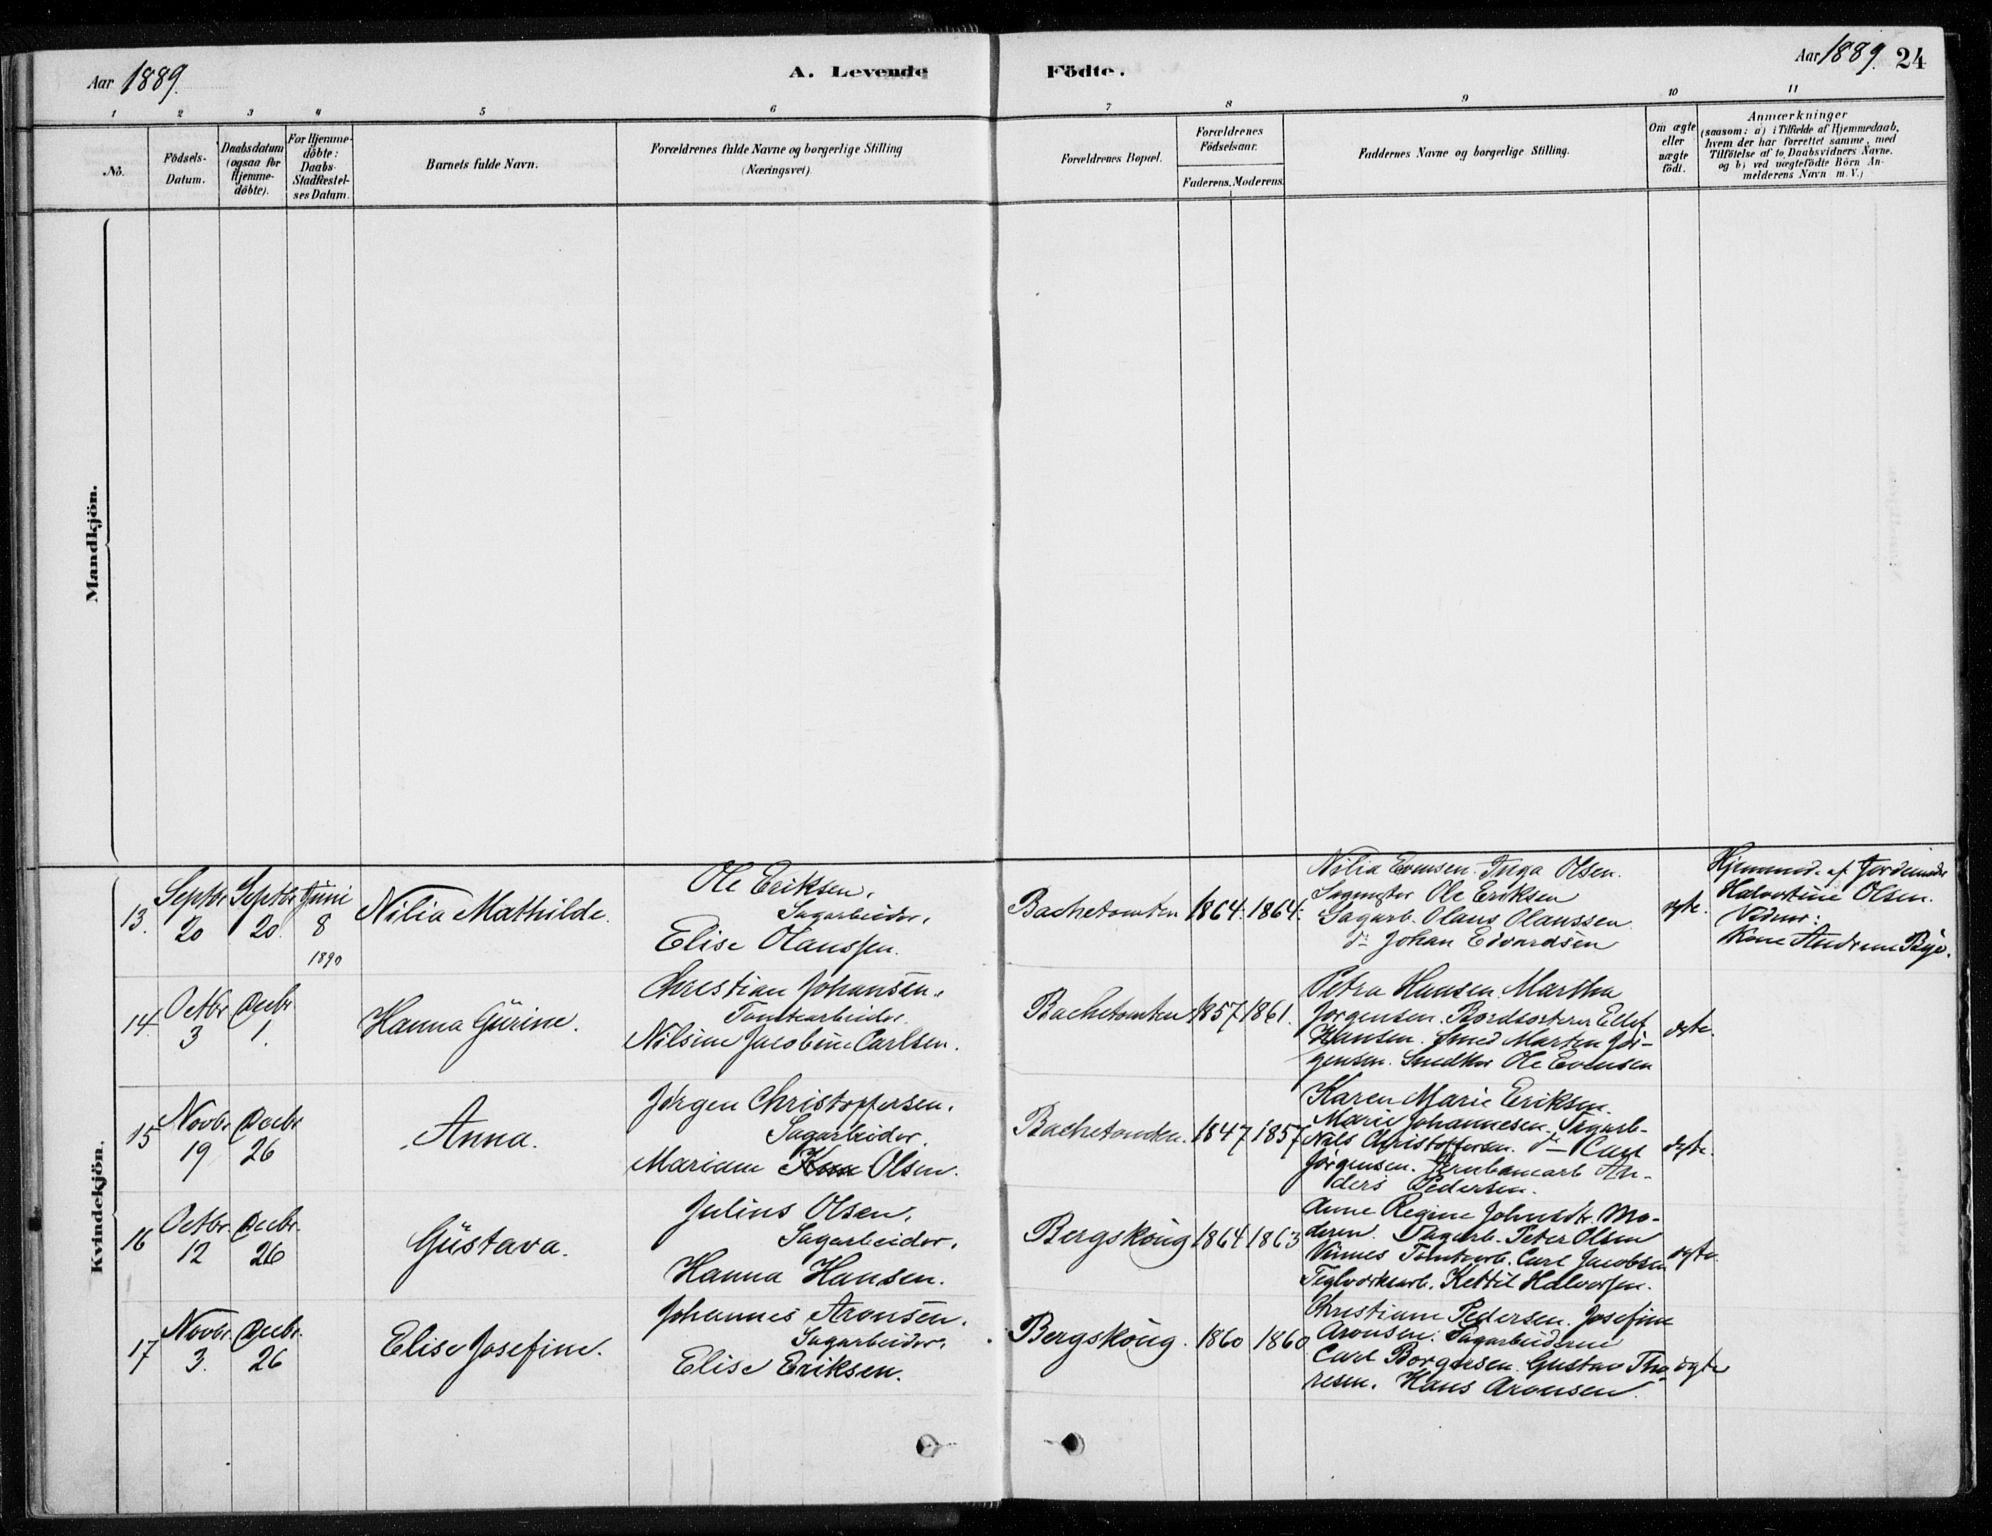 Aar 1889.
A. Levende Födte.
Aar 1889. 24
1 2 3 4 5 6 7 8 9 10 11
No.
Födsels-
Datum.
Daabsdatum
(ogsaa for
Hjemme-
döbte).
For Hjemme-
döbte:
Daabs-
Stadfæstel-
ses Datum.
Barnets fulde Navn.
Forældrenes fulde Navne og borgerlige Stilling
(Næringsvei).
Forældrenes Bopæl.
Forældrenes
Födselsaar.
Faderens. Moderens.
Faddernes Navne og borgerlige Stilling.
Om ægte
eller
uægte
födt.
Anmærkninger
(saasom: a) i Tilfælde af Hjemmedaab,
hvem der har forrettet samme, med
Tilföielse af to Daabsvidners Navne,
og b) ved uægtefödte Börn An-
melderens Navn m. V.)
Mandkjön.
Kvindekjön.
13.
Septbr
20
Septbr
20
Juni
8
1890
Nilia Mathilde.
Ole Eriksen,
Sagarbeider,
Elise Olaussen.
Bachetomten
1864. 1864.
Nilia Evensen. Inga Olsen.
Sagmster Ole Eriksen
Sagarb. Olaus Olaussen
do Johan Edvardsen
ægte.
Hjemmed. af Jordemoder
Halvortine Olsen.
Vidner:
Kone Andrine Bye.
14
Octbr
3
Decbr
1.
Hanna Gürine.
Christian Johansen,
Tomtearbeider.
Nilsine Jacobine Carlsen.
Bachetomten
1857 1861.
Petra Hansen. Martha
Jørgensen. Bordsorterer Ellef
Hansen. Smed Marten Jør-
gensen. Ole Evensen
ægte.
15
Novbr
19
Decbr
26
Anna.
Jørgen Christoffersen,
Sagarbeider.
Mariane Olsen.
Bachetomten.
1847 1857
Karen Marie Eriksen.
Marie Johannesen. Sagarb.
Nils Christoffersen. do Carl
Jørgensen. Jernbanearb An-
ders Pedersen.
ægte.
16
Octbr.
12
Decbr.
26
Güstava.
Julius Olsen,
Sagarbeider,
Hanna Hansen.
Bergskoug
1864 1863
Anne Regine Johnsdtr. Mo-
deren. Dagarb. Peter Olsen
Vinnes Tomtearb. Carl Jacobsen
Teglværksarb. Kettil Halvorsen.
ægte.
17
Novbr.
3.
Decbr.
26
Elise Josefine.
Johannes Aronsen.
Sagarbeider,
Elise Eriksen.
Bergskoug.
1860 1860
Christiane Pedersen. Josefine
Aronsen. Sagarbeiderne
Carl Borgersen. Gustav Tho-
resen. Hans Aronsen.
ægte